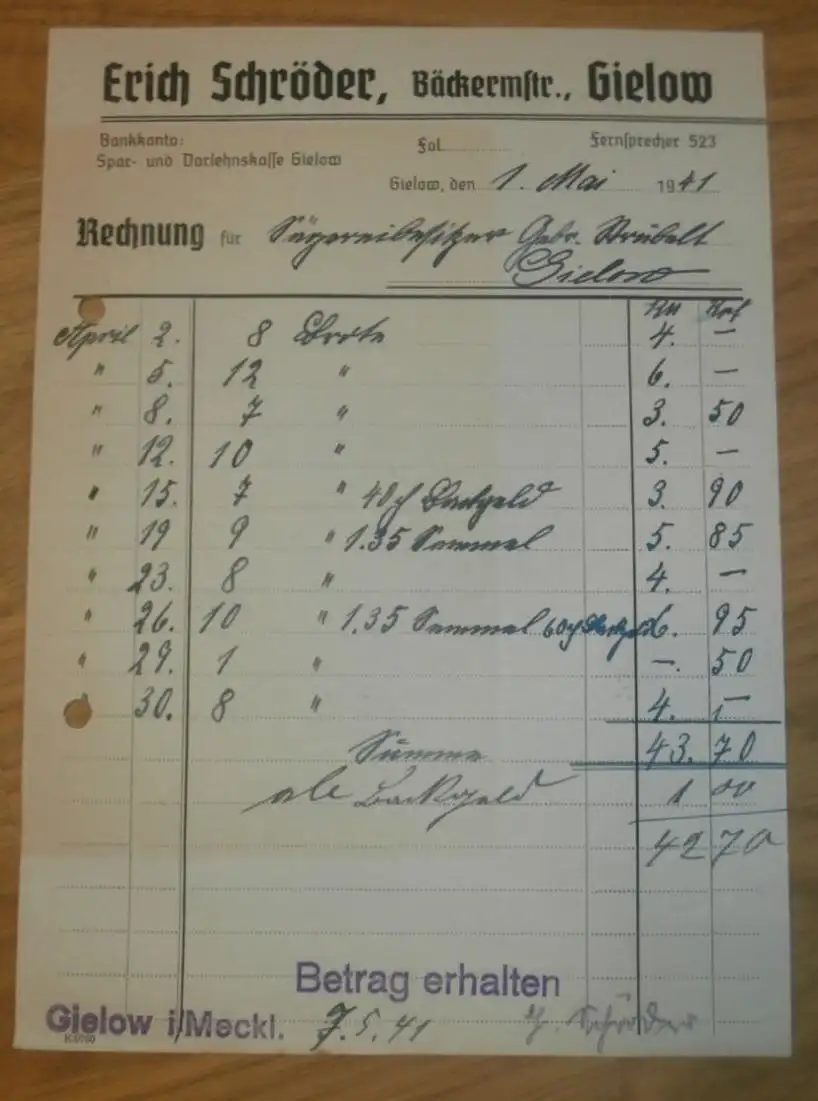 Erich Schröder, Bäckermstr., Gielow
Bankkonto:
Spar- und Darlehnskasse Gielow
Fol.
Fernsprecher 523
Gielow, den 1. Mai 1941
Rechnung für Sägereibesitzer Gebr. Strübelt
Gielow
April 2. 8 Brote 4. —
" 5. 12 " 6. —
" 8. 7 " 3. 50
" 12. 10 " 5. —
" 15. 7 " 40 Backgeld 3. 90
" 19 9 " 1.35 Semmel 5. 85
" 23. 8 " 4. —
" 26. 10 " 1.35 Semmel 60 Backgeld 6. 95
" 29. 1 " —. 50
" 30. 8 " 4. —
Summe 43. 70
Backgeld 1 00
42 70
Betrag erhalten
Gielow i/Meckl. 7.5.41 Schröder